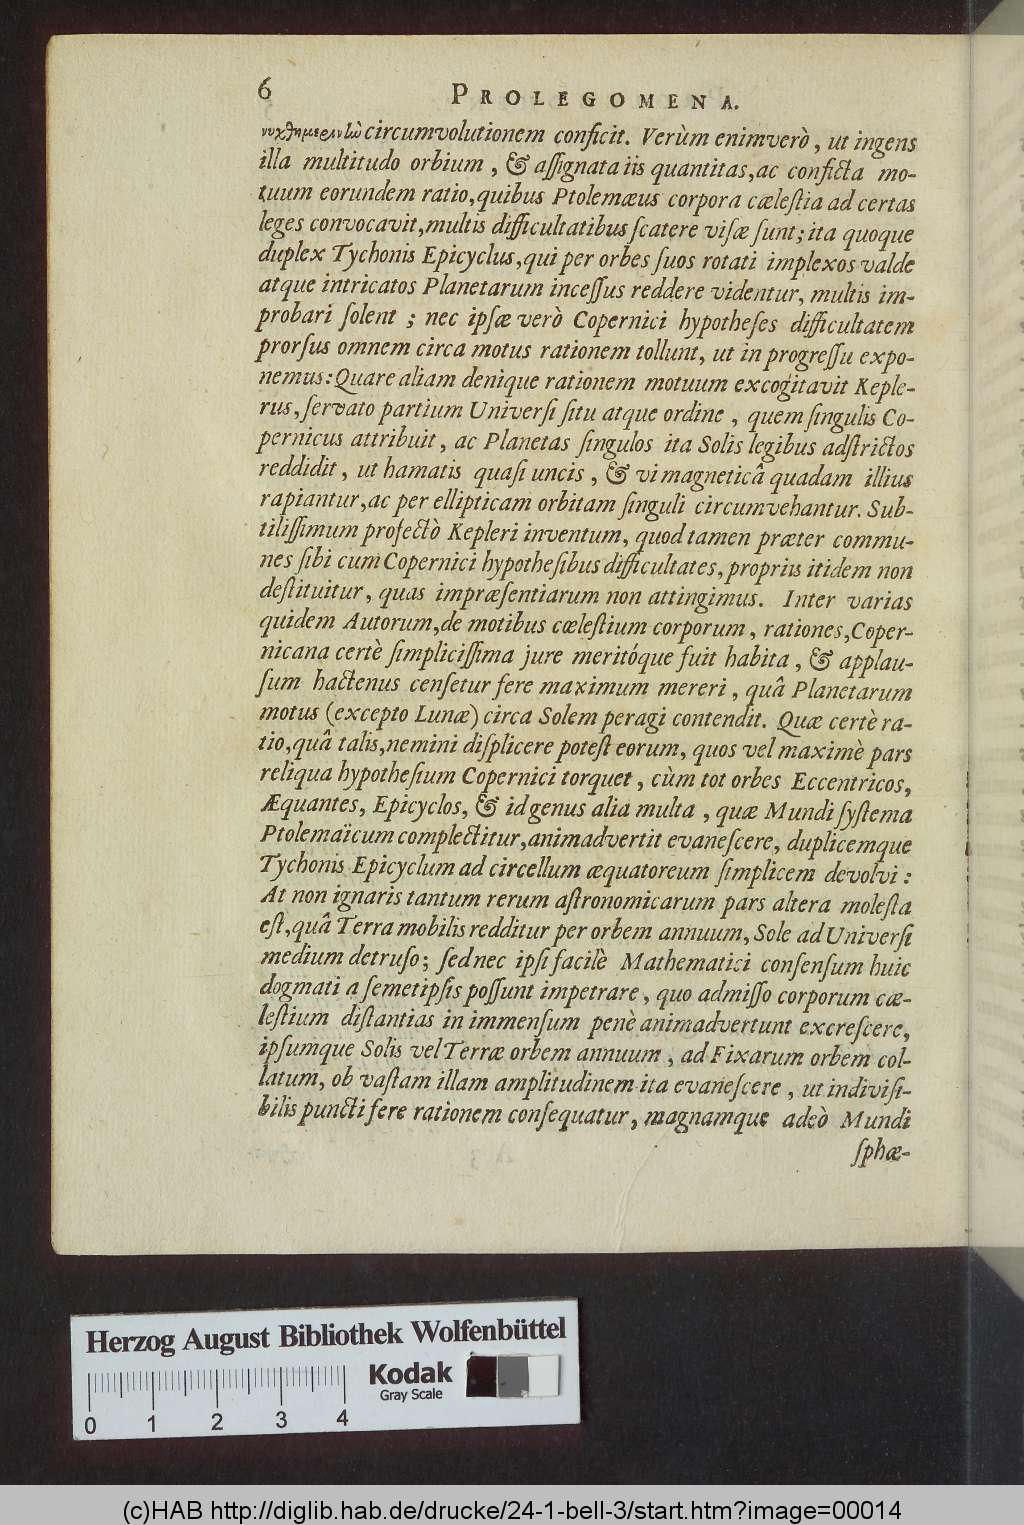 6 PROLEGOMENA.
circumvolutionem conficit. Verùm enimverò, ut ingens
illa multitudo orbium, & aſſignata iis quantitas, ac conficta mo-
tuum eorundem ratio, quibus Ptolemæus corpora cæleſtia ad certas
leges convocavit, multis difficultatibus ſcatere viſæ ſunt; ita quoque
duplex Tychonis Epicyclus, qui per orbes ſuos rotati implexos valde
atque intricatos Planetarum inceſſus reddere videntur, multis im-
probari ſolent; nec ipſæ verò Copernici hypotheſes difficultatem
prorſus omnem circa motus rationem tollunt, ut in progreſſu expo-
nemus: Quare aliam denique rationem motuum excogitavit Keple-
rus, ſervato partium Univerſi ſitu atque ordine, quem ſingulis Co-
pernicus attribuit, ac Planetas ſingulos ita Solis legibus adſtrictos
reddidit, ut hamatis quaſi uncis, & vi magneticâ quadam illius
rapiantur, ac per ellipticam orbitam ſinguli circumvehantur. Sub-
tiliſſimum profectò Kepleri inventum, quod tamen præter commu-
nes ſibi cum Copernici hypotheſibus difficultates, propriis itidem non
deſtituitur, quas impræſentiarum non attingimus. Inter varias
quidem Autorum, de motibus cæleſtium corporum, rationes, Coper-
nicana certè ſimpliciſſima jure meritóque fuit habita, & applau-
ſum hactenus cenſetur fere maximum mereri, quâ Planetarum
motus (excepto Lunæ) circa Solem peragi contendit. Quæ certè ra-
tio, quâ talis, nemini diſplicere poteſt eorum, quos vel maximè pars
reliqua hypotheſium Copernici torquet, cùm tot orbes Eccentricos,
Æquantes, Epicyclos, & id genus alia multa, quæ Mundi ſyſtema
Ptolemaïcum complectitur, animadvertit evaneſcere, duplicemque
Tychonis Epicyclum ad circellum æquatoreum ſimplicem devolvi:
At non ignaris tantum rerum aſtronomicarum pars altera moleſta
eſt, quâ Terra mobilis redditur per orbem annuum, Sole ad Univerſi
medium detruſo; ſed nec ipſi facilè Mathematici conſenſum huic
dogmati a ſemetipſis poſſunt impetrare, quo admiſſo corporum cæ-
leſtium diſtantias in immenſum penè animadvertunt excreſcere,
ipſumque Solis vel Terræ orbem annuum, ad Fixarum orbem col-
latum, ob vaſtam illam amplitudinem ita evaneſcere, ut indiviſi-
bilis puncti fere rationem conſequatur, magnamque adeò Mundi
ſphæ-
Herzog August Bibliothek Wolfenbüttel
Kodak
Gray Scale
0 1 2 3 4
(c)HAB http://diglib.hab.de/drucke/24-1-bell-3/start.htm?image=00014